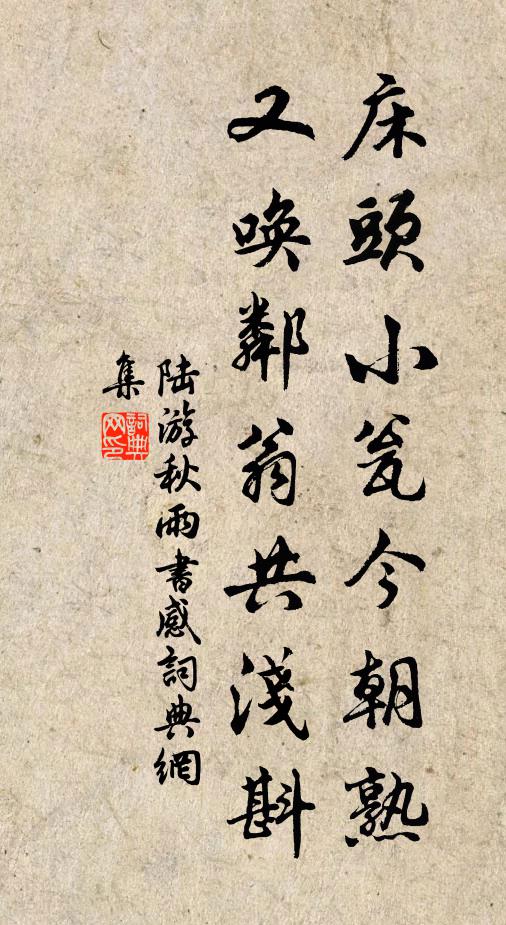 床頭小瓮今朝熟
又喚鄰翁共淺斟
陸游秋雨書感詞典網
集
詞典
网印